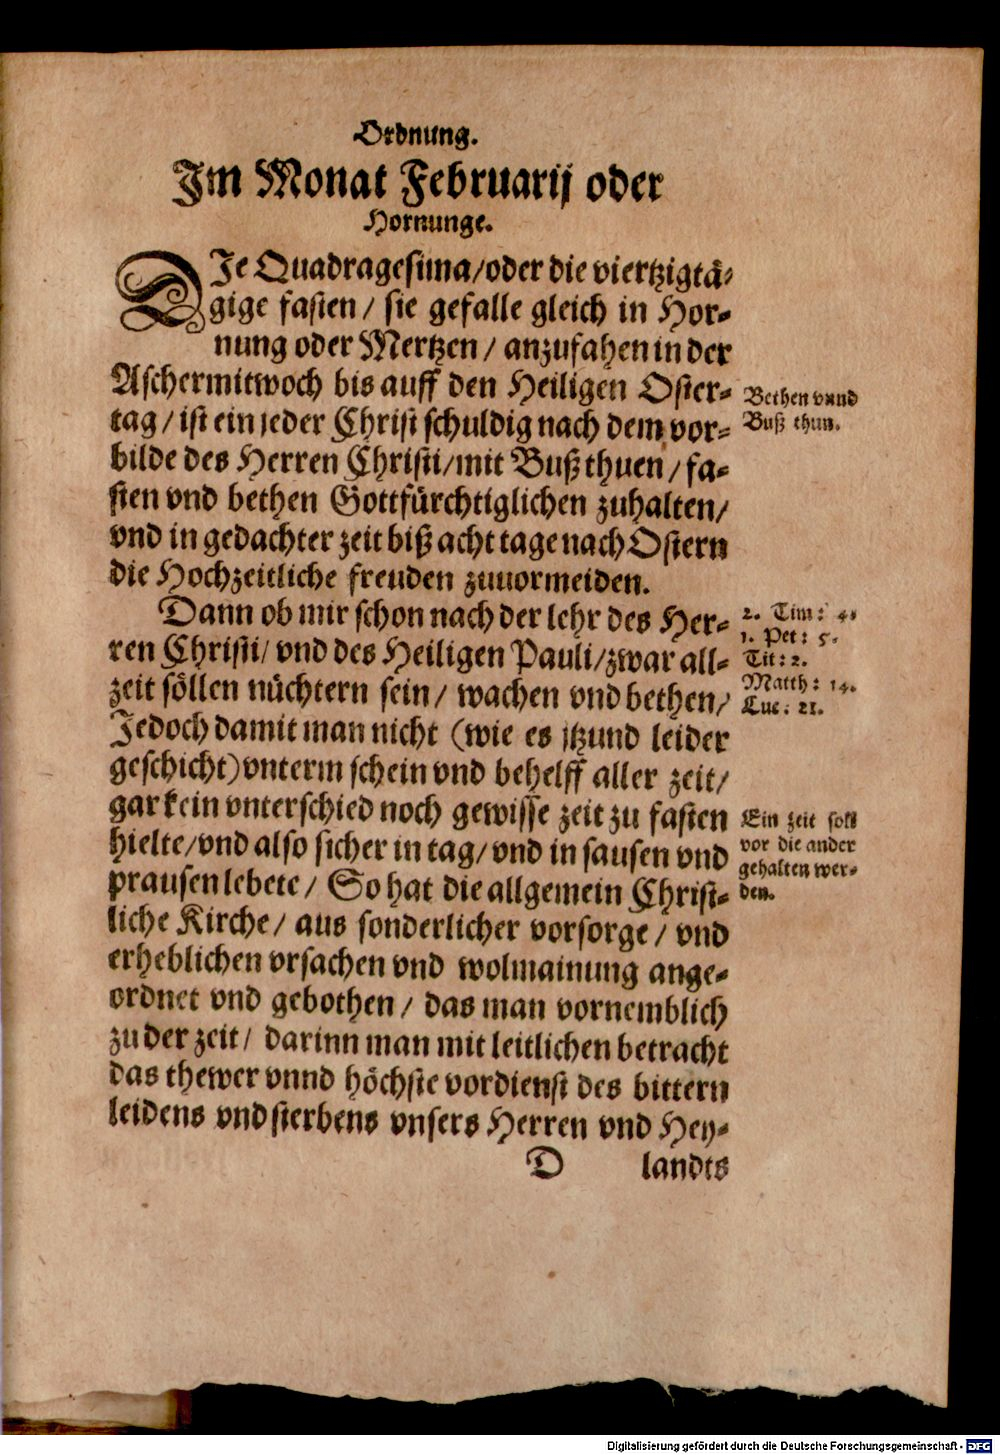 Ordnung.
Im Monat Februarij oder
Hornunge.
DIe Quadragesima/oder die viertzigtä-
gige fasten / sie gefalle gleich in Hor-
nung oder Mertzen / anzufahen in der
Aschermitwoch bis auff den Heiligen Oster-
tag / ist ein jeder Christ schuldig nach dem vor-
bilde des Herren Christi/mit Buß thuen / fa-
sten vnd bethen Gottfürchtiglichen zuhalten/
vnd in gedachter zeit biß acht tage nach Ostern
die Hochzeitliche freuden zuuormeiden.
Bethen vnnd
Buß thun.
Dann ob mir schon nach der lehr des Her-
ren Christi/ vnd des Heiligen Pauli/zwar all-
zeit söllen nüchtern sein/ wachen vnd bethen/
Jedoch damit man nicht (wie es jtzund leider
geschicht)vnterm schein vnd behelff aller zeit/
gar kein vnterschied noch gewisse zeit zu fasten
hielte/vnd also sicher in tag/vnd in sausen vnd
prausen lebete/ So hat die allgemein Christ-
liche Kirche/ aus sonderlicher vorsorge / vnd
erheblichen vrsachen vnd wolmainung ange-
ordnet vnd gebothen/ das man vornemblich
zu der zeit/ darinn man mit leitlichen betracht
das thewer vnnd höchste vordienst des bittern
leidens vnd sterbens vnsers Herren vnd Hey-
2. Tim: 4.
1. Pet: 5.
Tit: 2.
Matth: 14.
Luc: 21.
Ein zeit soll
vor die ander
gehalten wer-
den.
D landts
Digitalisierung gefördert durch die Deutsche Forschungsgemeinschaft - DFG